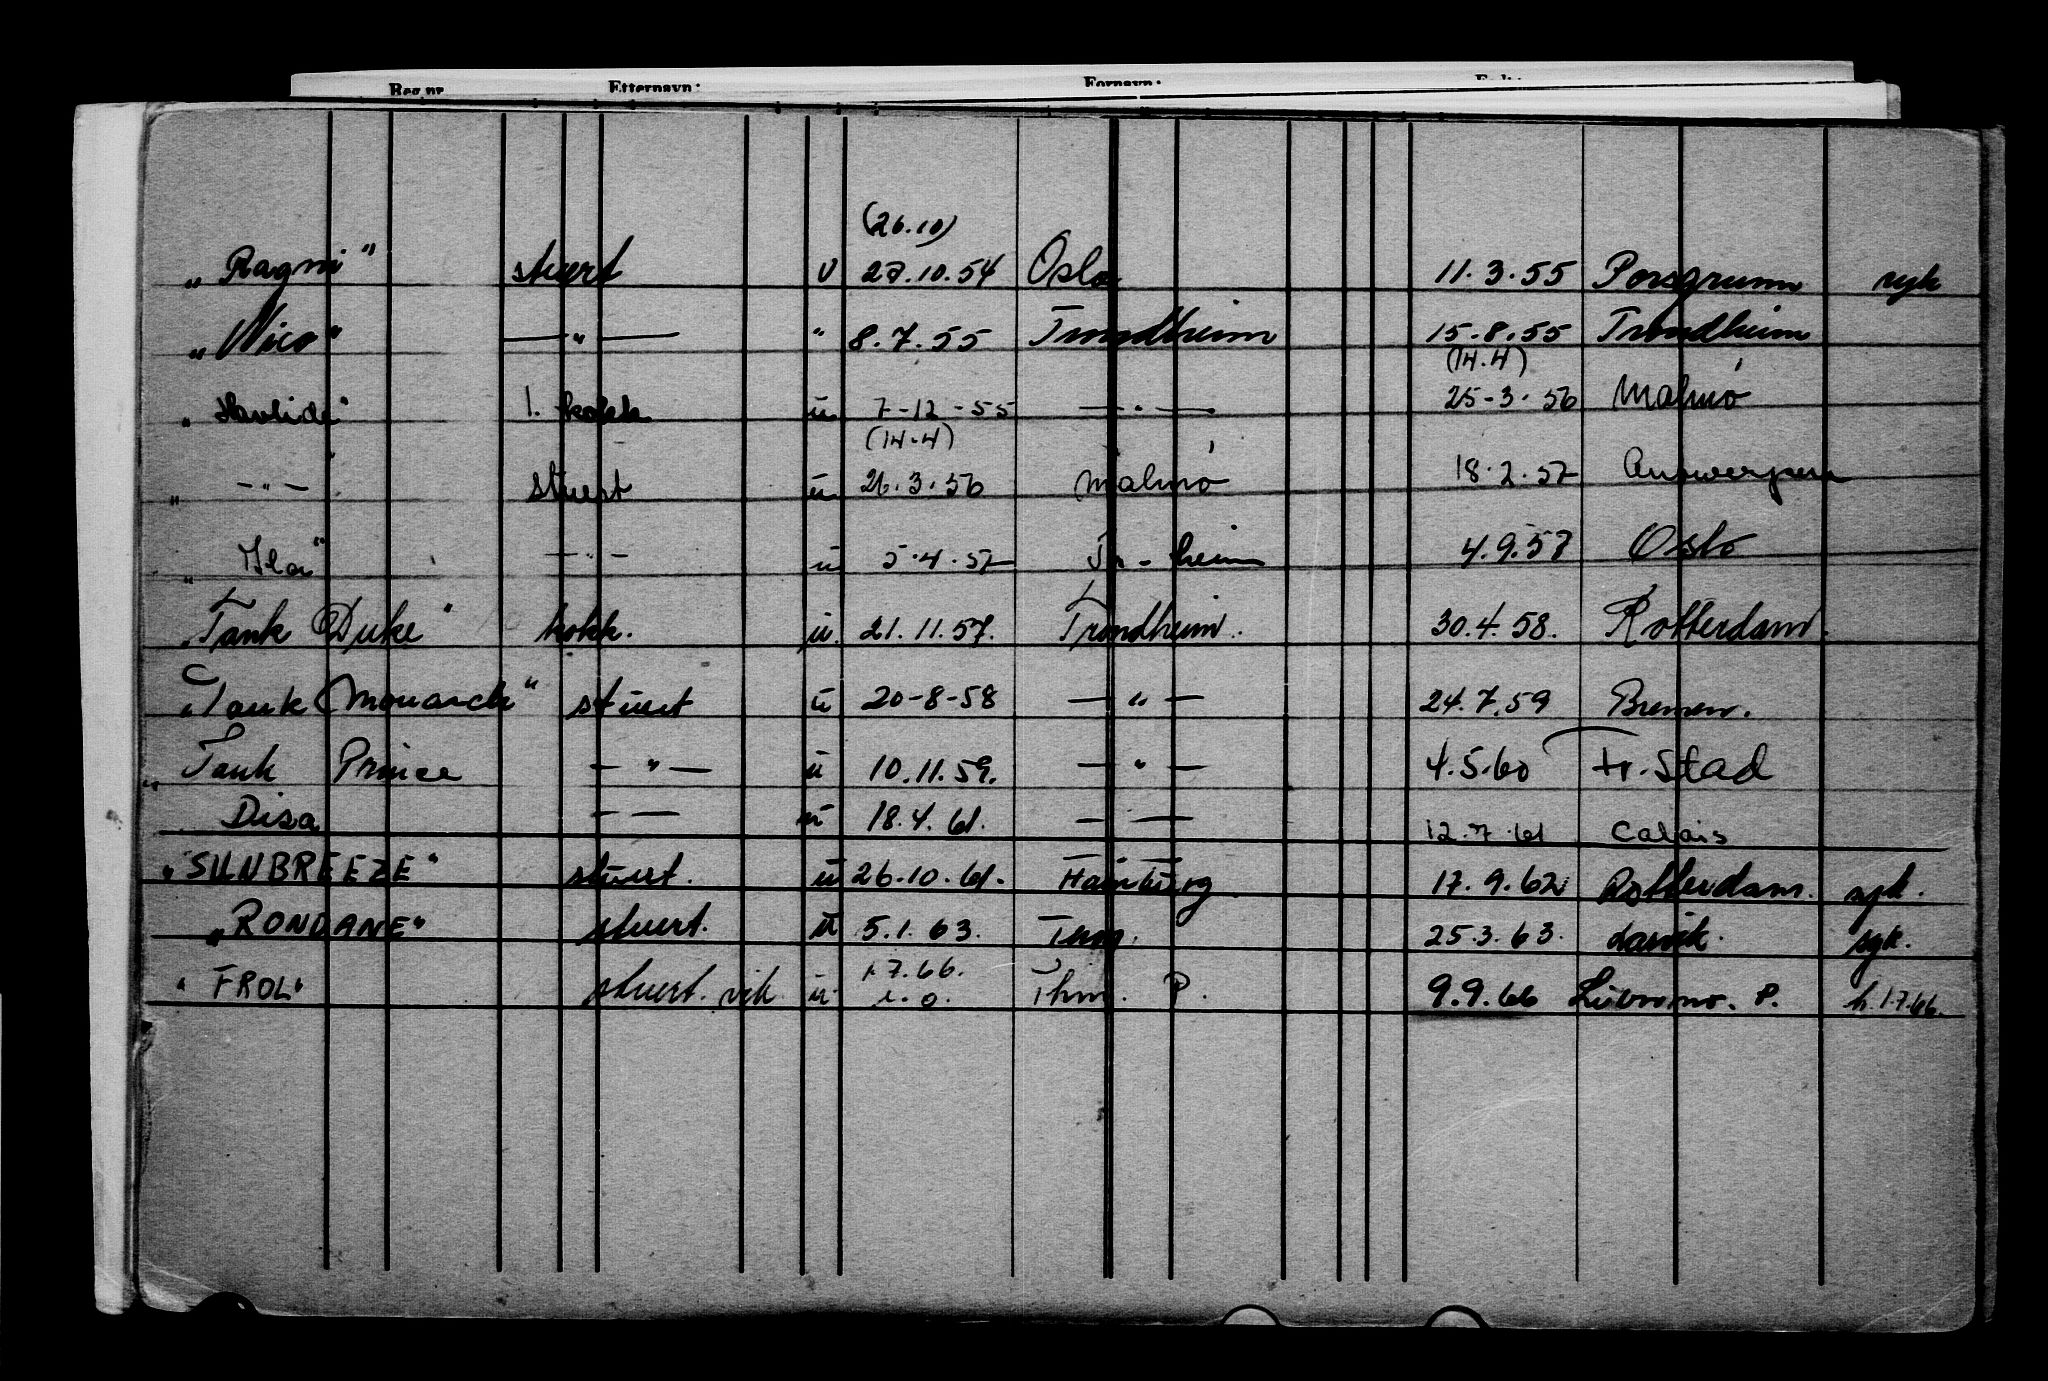 Reg.nr. Etternavn: Fornavn:
(26.10)
„Ragni" stuert u 27.10.54 Oslo 11.3.55 Porsgrunn syk
„Nico" — „ — " 8.7.55 Trondheim 15.8.55 Trondheim
(14.4)
„Havlide" 1. kokk u 7-12-55 — „ — 25-3.56 Malmö
(14.4)
„ — „ — stuert u 26.3.56 Malmö 18.2.57 Antwerpen
„Ila" — „ — u 5.4.57 Tr.heim 4.9.57 Oslo
„Tank Duke" kokk. u. 21.11.57. Trondheim. 30.4.58. Rotterdam.
„Tank Monarch" stuert u 20-8-58 — „ — 24.7.59 Bremen.
„Tank Prince — „ — u 10.11.59. — „ — 4.5.60 Fr.stad
Disa — — u 18.4.61. — — 12.7.61 Calais
„SUNBREEZE" stuert. u 26.10.61. Hamburg 17.9.62 Rotterdam. syk.
„RONDANE" stuert. u 5.1.63. Thm. 25.3.63. Larvik. syk.
1.7.66.
"FROL" stuert. vik u i.o. Thm. P. 9.9.66 P. h.1.7.66.